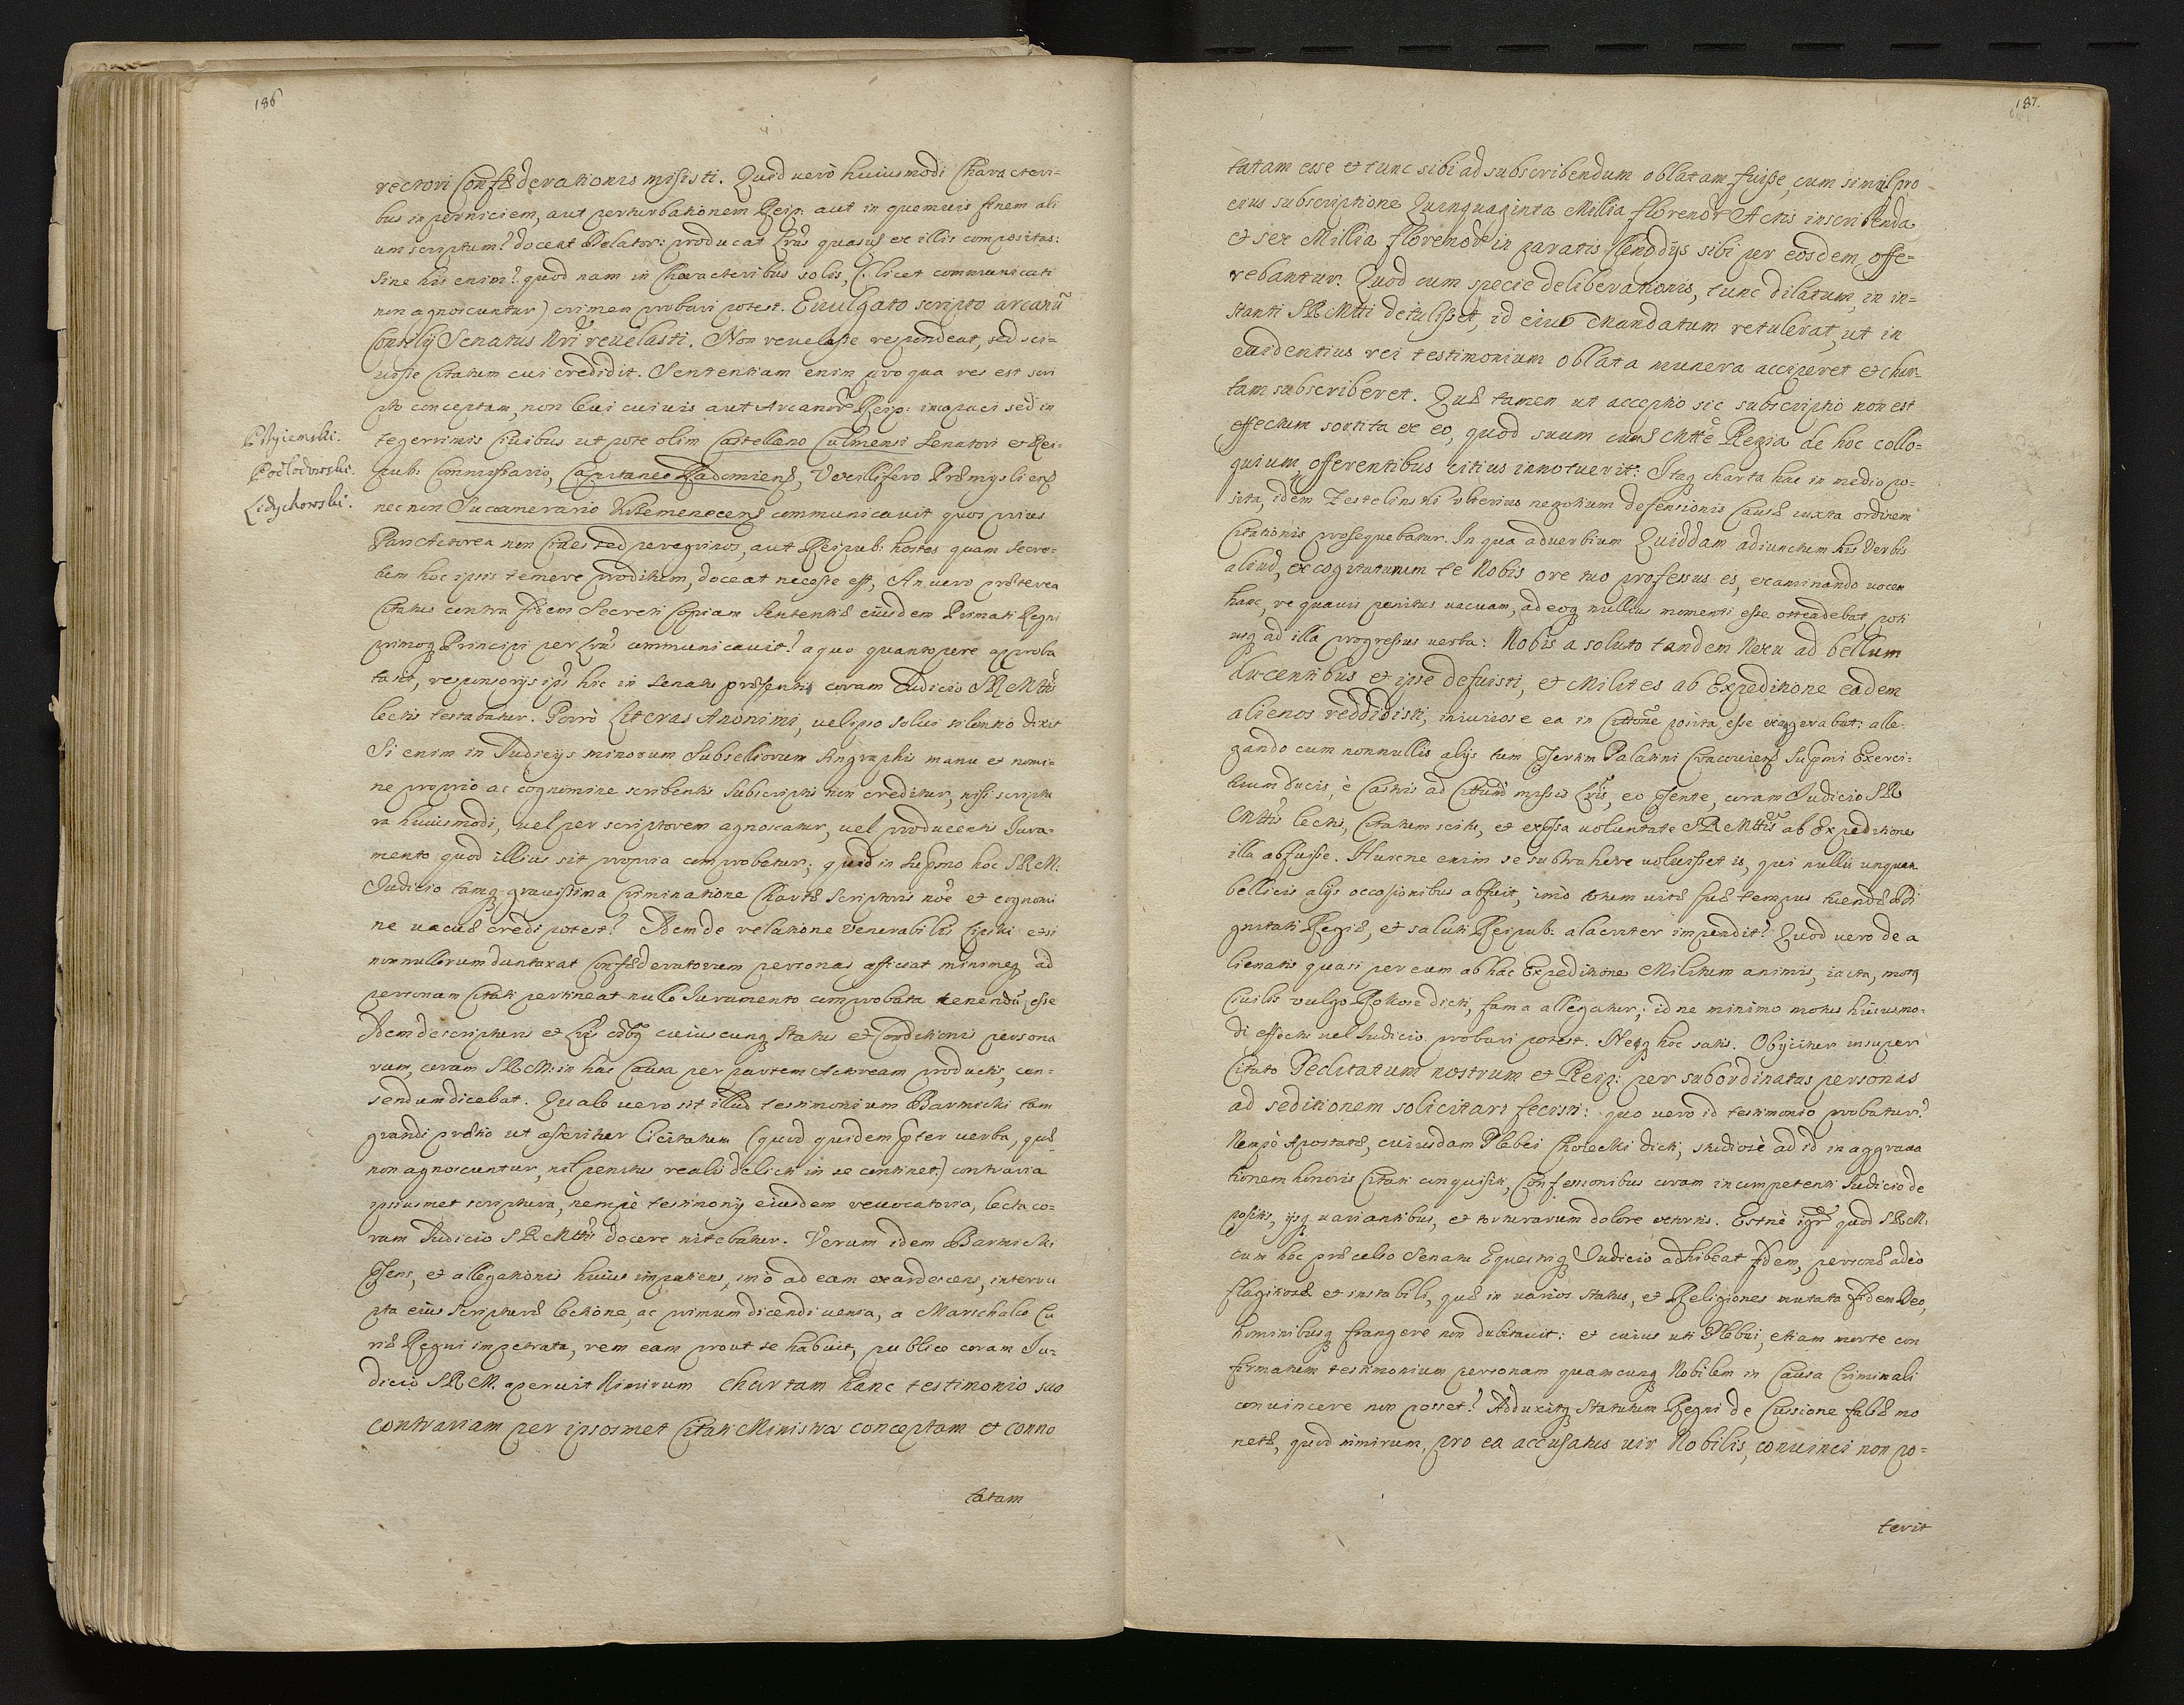 186
rectori Confæderationis misisti. Quid verò huiusmodi Characteri-
bus in perniciem, aut perturbationem Reip: aut in quemuis finem ali
um scriptum? doceat Delator: producat Lras quasuis ex illis compositas:
Sine his enim? quod nam in Characteribus solis, (licet communicati
non agnoscuntur) crimen probari potest. Euulgato scripto arcanũ
Consilij Senatus Nri reuelasti. Non reuelasse respondeat, sed sci-
uisse Citatum cui credidit. Sententiam enim pro qua res est scri
pto conceptam, non leui cuiuis aut Arcanor Reip: incapaci sed in
tegerrimis Ciuibus ut pote olim Castellano Culmensi Senatori et Rei-
pub: Commissario, Capitaneo Radomiens, Vexillifero Præmysliens
nec non Succamerario Krzemenecens communicauit quos prius
Pars Actorea non Ciues sed peregrinos, aut Reipub: hostes quam Secre-
tum hoc ipsis temere proditum, doceat necesse est, An vero præterea
Citatus contra fidem Secreti Copiam Sententiæ eiusdem Primati Regni
primoq Principi per Lras communicauit? a quo quantopere approba
ta sit, responsorijs ipsi hic in Senatu præsentis coram Iudicio SRMttis
lectis testabatur. Porrò Literas Anonimi, uel ipso solui silentio dixit
Si enim in Iudicijs minorum Subselliorum Singraphis manu et nomi-
ne proprio ac cognomine scribentis Subscriptis non creditur, nisi scriptu
ra huiusmodi, uel per scriptorem agnoscatur, uel producentis Iura-
mento quod illius sit propria comprobetur; quid in Supmo hoc SRM.
Iudicio tamq grauissima Criminatione Chartæ Scriptoris noe et cognomi
ne uacuæ credi potest? Item de relatione Venerabilis Lipski etsi
nonnullorum duntaxat Confæderatorum personas afficiat minimeq ad
personam Citati pertineat nullo Iuramento comprobata tenendũ esse
Item de scripturis et Lris cuiuscunq Status et Conditionis persona
rum, coram SRM: in hac Causa per partem Actoream productis, cen-
sendum dicebat. Quale uero sit illud testimonium Barnicki tam
grandi prætio ut asseritur licitatum (quod quidem ppter uerba, quæ
non agnoscuntur, nil penitus realis delicti in se continet) contraria
ipsiusmet scriptura, nempè testimonij eiusdem reuocatoria, lecta co-
ram Iudicio SRMttis docere nitebatur. Verum idem Barnicki
Psens, et allegationis huius impatiens, imò ad eam exardescens, interru
pta eius scripturæ lectione, ac primum dicendi uenia, a Marschalco Cu
riæ Regni impetrata, rem eam prout se habuit, publice coram Iu-
dicio SRM. aperuit Nimirum chartam hanc testimonio suo
contrariam per ipsosmet Citati Ministros conceptam et conno
tatam
Lidychowski.
187.
tatam esse et tunc sibi ad subscribendum oblatam fuisse, cum simul pro
eius subscriptione Quinquaginta Millia florenor Actis inscribenda
et sex Millia florenor in paratis Clenodijs sibi per eosdem offe-
rebantur. Quod cum specie deliberationis, tunc dilatum, in in-
stanti SRMtti detulisset, id eius Mandatum retulerat, ut in
euidentius rei testimonium oblata munera acciperet et char-
tam subscriberet. Quæ tamen ut acceptio sic subscriptio non est
effectum sortita ex eo, quod suum cum Mtte Regia de hoc collo-
quium, offerentibus citius innotuerit: Itaq charta hac in medio po-
sita, idem Zestelinski ulterius negotium defensionis Causæ iuxta ordinem
Citationis prosequebatur. In qua aduerbium Quiddam adiunctum his Verbis
aliud, excogitaturum te Nobis ore tuo professus es, examinando uocem
hanc, re quauis penitus uacuam, adeoq nullius momenti esse ostendebat, poti
usq ad illa progressus uerba: Nobis a soluto tandem Nexu ad bellum
ducentibus et ipse defuisti, et Milites ab Expeditione eadem
alienos reddidisti, iniuriose ea in Cittone posita esse exaggerabat: alle-
gando cum nonnullis alijs tum Psertim Palatini Cracouiens Supmi Exerci-
tuum ducis, è Castris ad Citatum missis Lris, eo Psente, coram Iudicio SR
Mttis lectis, Citatum scitu, et expssa uoluntate SRMttis ab Expeditione
illa abfuisse. Hucne enim se subtrahere uoluisset is, qui nullis unquam
bellicis alijs occasionibus abfuit, imò totum uitæ suæ tempus tuendæ Di
gnitati Regiæ, et saluti Reipub: alacriter impendit? Quod uero de a
lienatis quasi per eum ab hac Expeditione Militum animis, iacta, motq
Ciuilis vulgo Rokosz dicti, fama allegatur; id ne minimo motus huiusmo-
di effectu uel Iudicio probari potest. Neq hoc satis. Obijcitur insuper
Citato Peditatum nostrum et Reip: per subordinatas personas
ad seditionem solicitari fecisti: quo uero id testimonio probatur?
Nempè Apostatæ, cuiusdam Plebei Cholecki dicti, studiosè ad id in aggraua
tionem honoris Citati conquisiti, Confessionibus coram incompetenti Iudicio de
positis, ijsq uariantibus, et torturarum dolore extortis. Estnè igr quod SRM.
cum hoc præcelso Senatu Equestriq Iudicio adhibeat fidem, personæ adeò
flagitiosæ et instabili, quæ in uarios status, et Religiones mutata fidem Deo,
hominibusq frangere non dubitauit: et cuius uti Plebei, etiam morte con
firmatum testimonium personam quamcunq Nobilem in Causa Criminali
conuincere non posset? Adduxitq Statutum Regni de Cussione falsæ mo
netæ, quod nimirum, pro ea accusatus uir Nobilis, conuinci non po-
terit